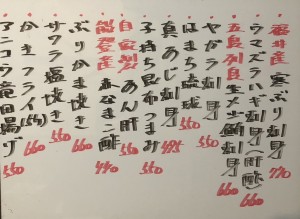 福井産 寒ぶり刺身 770
ウマズラハギ刺身(肝酢) 660
五島列島 生メジ鮪刺身 660
やがら刺身 550
はまち琉球 550
真あじ刺身 495
子持ち昆布つまみ 550
自家製 あん肝 550
能登産 赤なまこ酢 440
ぶりかま焼き 550
サワラ塩焼き 660
かきフライ 660
アコウ竜田揚げ 550